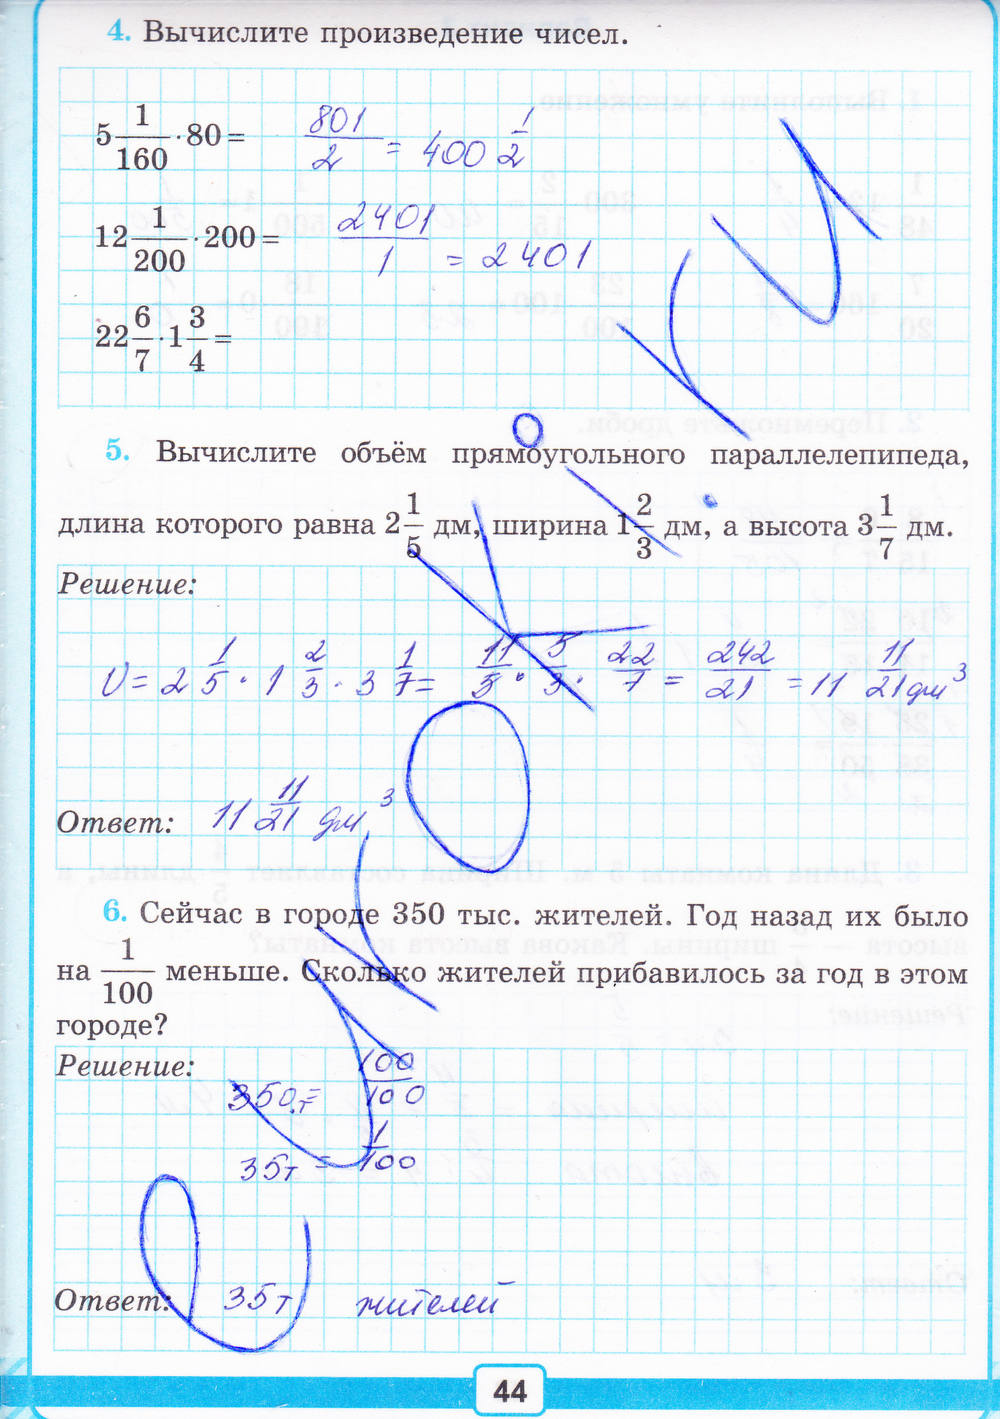 4. Вычислите произведение чисел.
5 1/160 · 80 = 801/2 = 400 1/2
12 1/200 · 200 = 2401/1 = 2401
22 6/7 · 1 3/4 =
5. Вычислите объём прямоугольного параллелепипеда,
длина которого равна 2 1/5 дм, ширина 1 2/3 дм, а высота 3 1/7 дм.
Решение:
V = 2 1/5 · 1 2/3 · 3 1/7 = 11/5 · 5/3 · 22/7 = 242/21 = 11 11/21 дм³
Ответ: 11 11/21 дм³
6. Сейчас в городе 350 тыс. жителей. Год назад их было
на 1/100 меньше. Сколько жителей прибавилось за год в этом
городе?
Решение:
350 т = 100/100
35 т = 1/100
Ответ: 35 т жителей
44